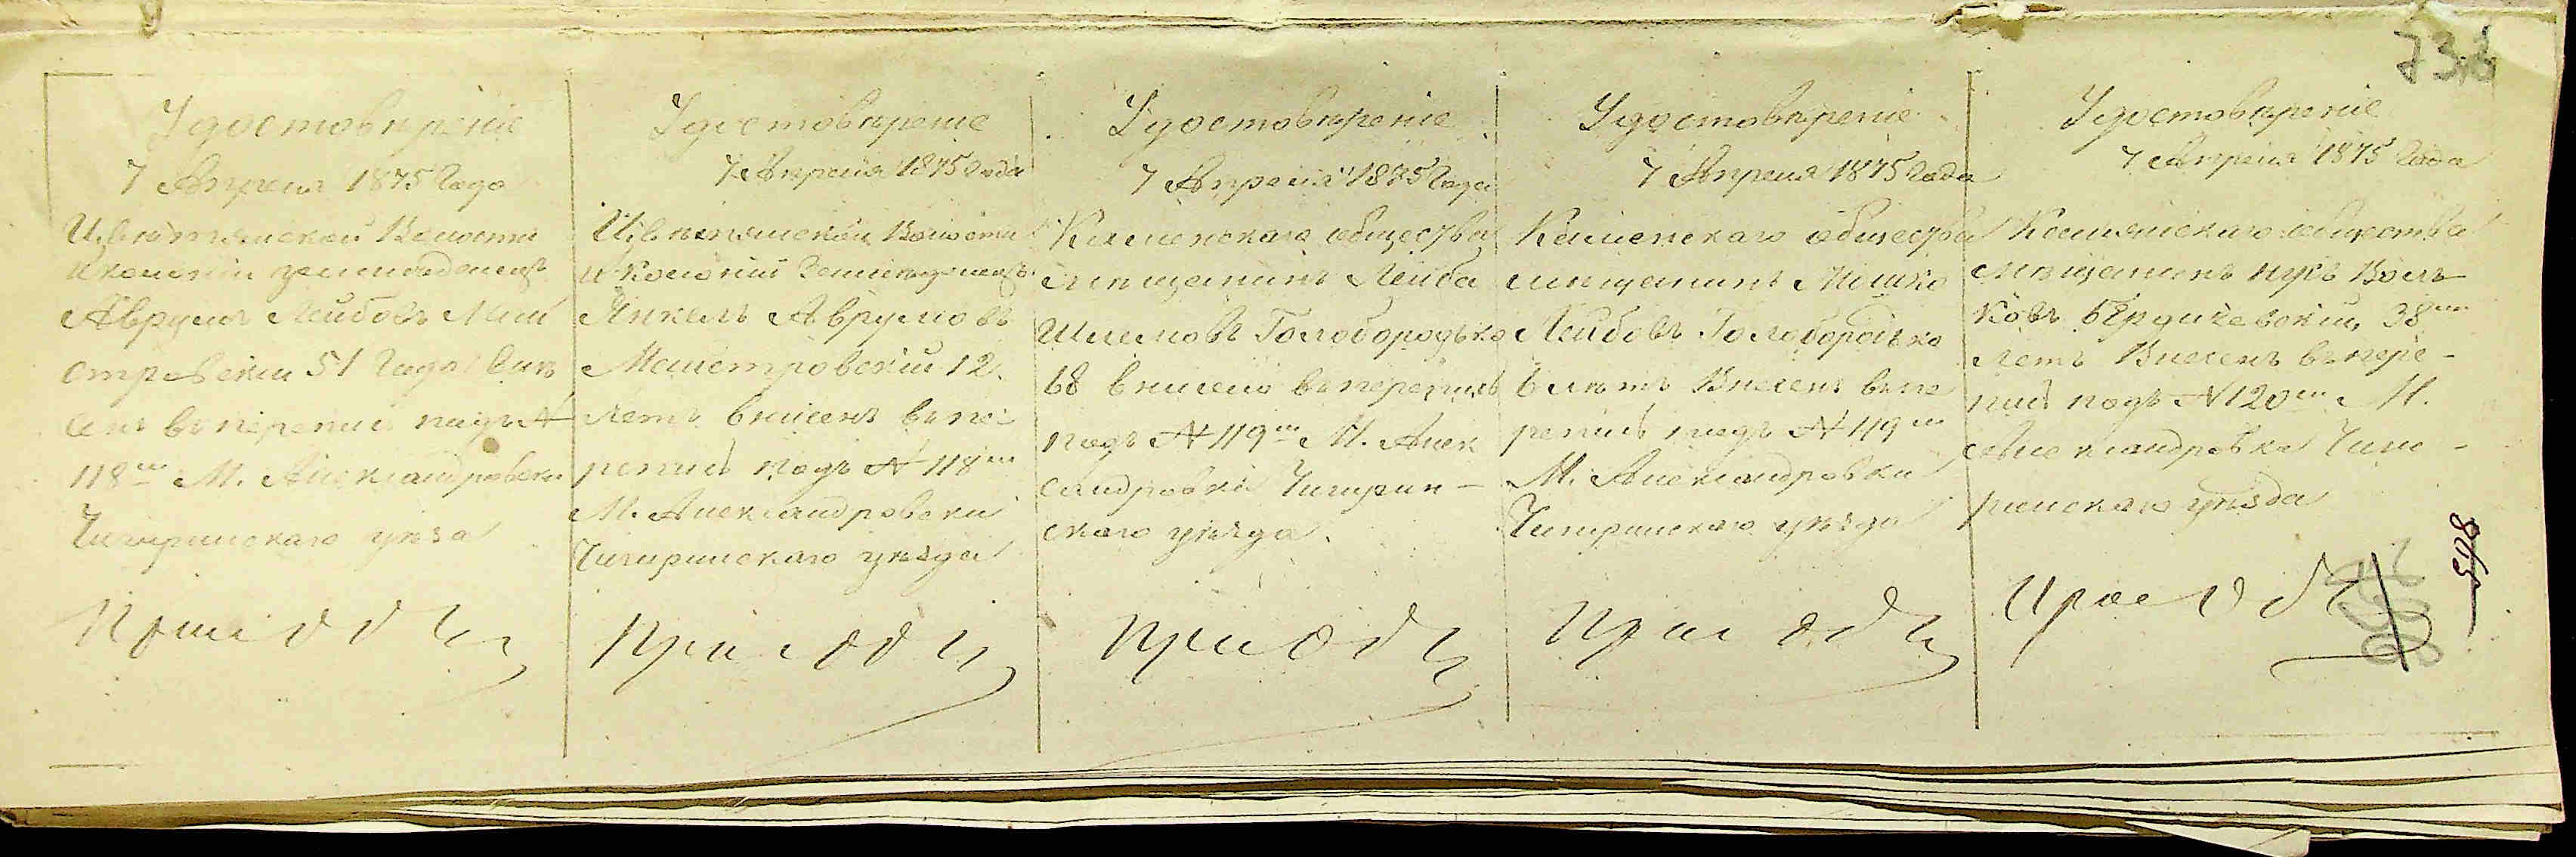 738
Удостовѣрение
7 Апреля 1875 Года
Цвѣтянской Волости
и колонии земледелецъ
Аврумъ Лейбовъ Маи
стровский 51 Года Вне
сенъ въ перепись подъ №
118мъ М. Александровки
Чигиринскаго уѣзда
Удостовѣрение
7 Апреля 1875 Года
Цвѣтянской Волости
и колонии Земледелецъ
Янкель Аврумовъ
Маистровский 12
летъ внисенъ въ пе
репись подъ № 118мъ
М. Александровки
Чигиринскаго уѣзда
Удостовѣрение
7 Апреля 1875 Года
Каменскаго общества
мѣщанинъ Лейба
Шлемовъ Голобородько
68 внисенъ въ перепись
подъ № 119мъ М. Алек
сандровки Чигирин-
скаго уѣзда.
Удостовѣрение
7 Апреля 1875 Года
Каменскаго общества
мѣщанинъ Мошко
Лейбовъ Голобородько
летъ Внесенъ въ пе
репись подъ № 119мъ
М. Александровки
Чигиринскаго уѣзда
Удостовѣрение
7 Апреля 1875 Года
общества
мѣщанинъ Воль
ковъ Бердичевский, 38мъ
летъ Внесенъ въ пере-
пись подъ № 120мъ М.
Александровка Чиги-
ринскаго уѣзда